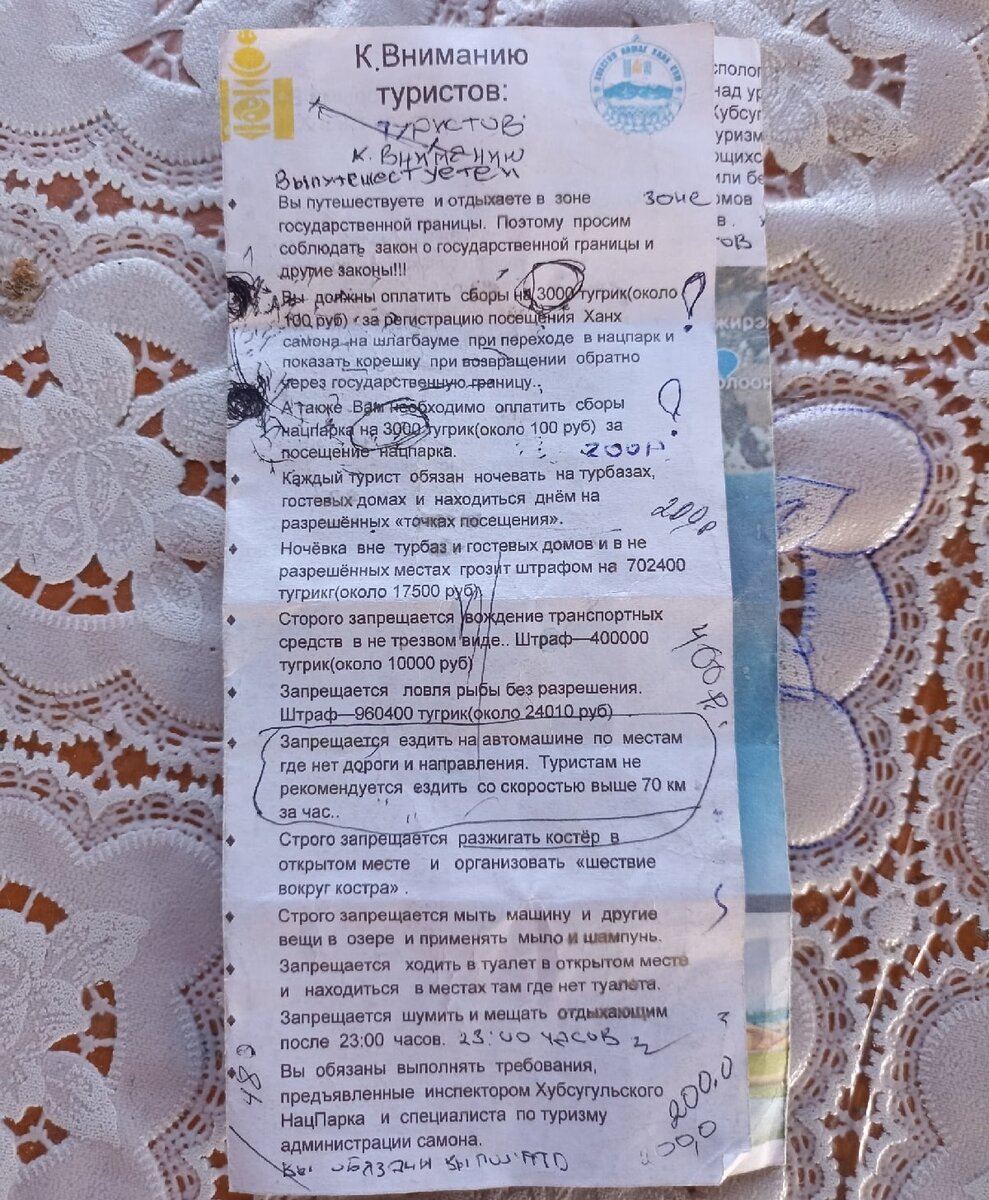 К.Вниманию
туристов:
туристов
К. Вниманию
Вы путешествуете и
Вы путешествуете и отдыхаете в зоне зоне
государственной границы. Поэтому просим
соблюдать закон о государственной границы и
другие законы!!!
Вы должны оплатить сборы на 3000 тугрик(около
100 руб) за регистрацию посещения Ханх
самона на шлагбауме при переходе в нацпарк и
показать корешку при возвращении обратно
через государственную границу..
А также Вам необходимо оплатить сборы
нацпарка на 3000 тугрик(около 100 руб) за
посещение нацпарка.
Каждый турист обязан ночевать на турбазах,
гостевых домах и находиться днём на
разрешённых «точках посещения».
200р
Ночёвка вне турбаз и гостевых домов и в не
разрешённых местах грозит штрафом на 702400
тугрикг(около 17500 руб)
Сторого запрещается вождение транспортных
средств в не трезвом виде.. Штраф—400000
тугрик(около 10000 руб)
400р.
Запрещается ловля рыбы без разрешения.
Штраф—960400 тугрик(около 24010 руб)
Запрещается ездить на автомашине по местам
где нет дороги и направления. Туристам не
рекомендуется ездить со скоростью выше 70 км
за час..
Строго запрещается разжигать костёр в
открытом месте и организовать «шествие
вокруг костра» .
Строго запрещается мыть машину и другие
вещи в озере и применять мыло и шампунь.
Запрещается ходить в туалет в открытом месте
и находиться в местах там где нет туалета.
Запрещается шумить и мещать отдыхающим
после 23:00 часов. 23:00 часов
Вы обязаны выполнять требования,
предъявленные инспектором Хубсугульского
НацПарка и специалиста по туризму
администрации самона.
Вы обязаны